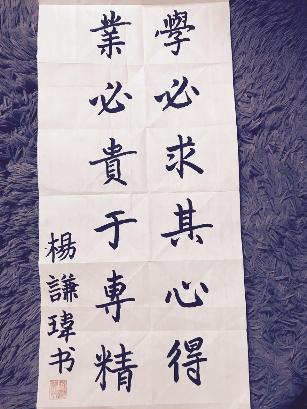 學必求其心得
業必貴于專精
楊謙瑋书